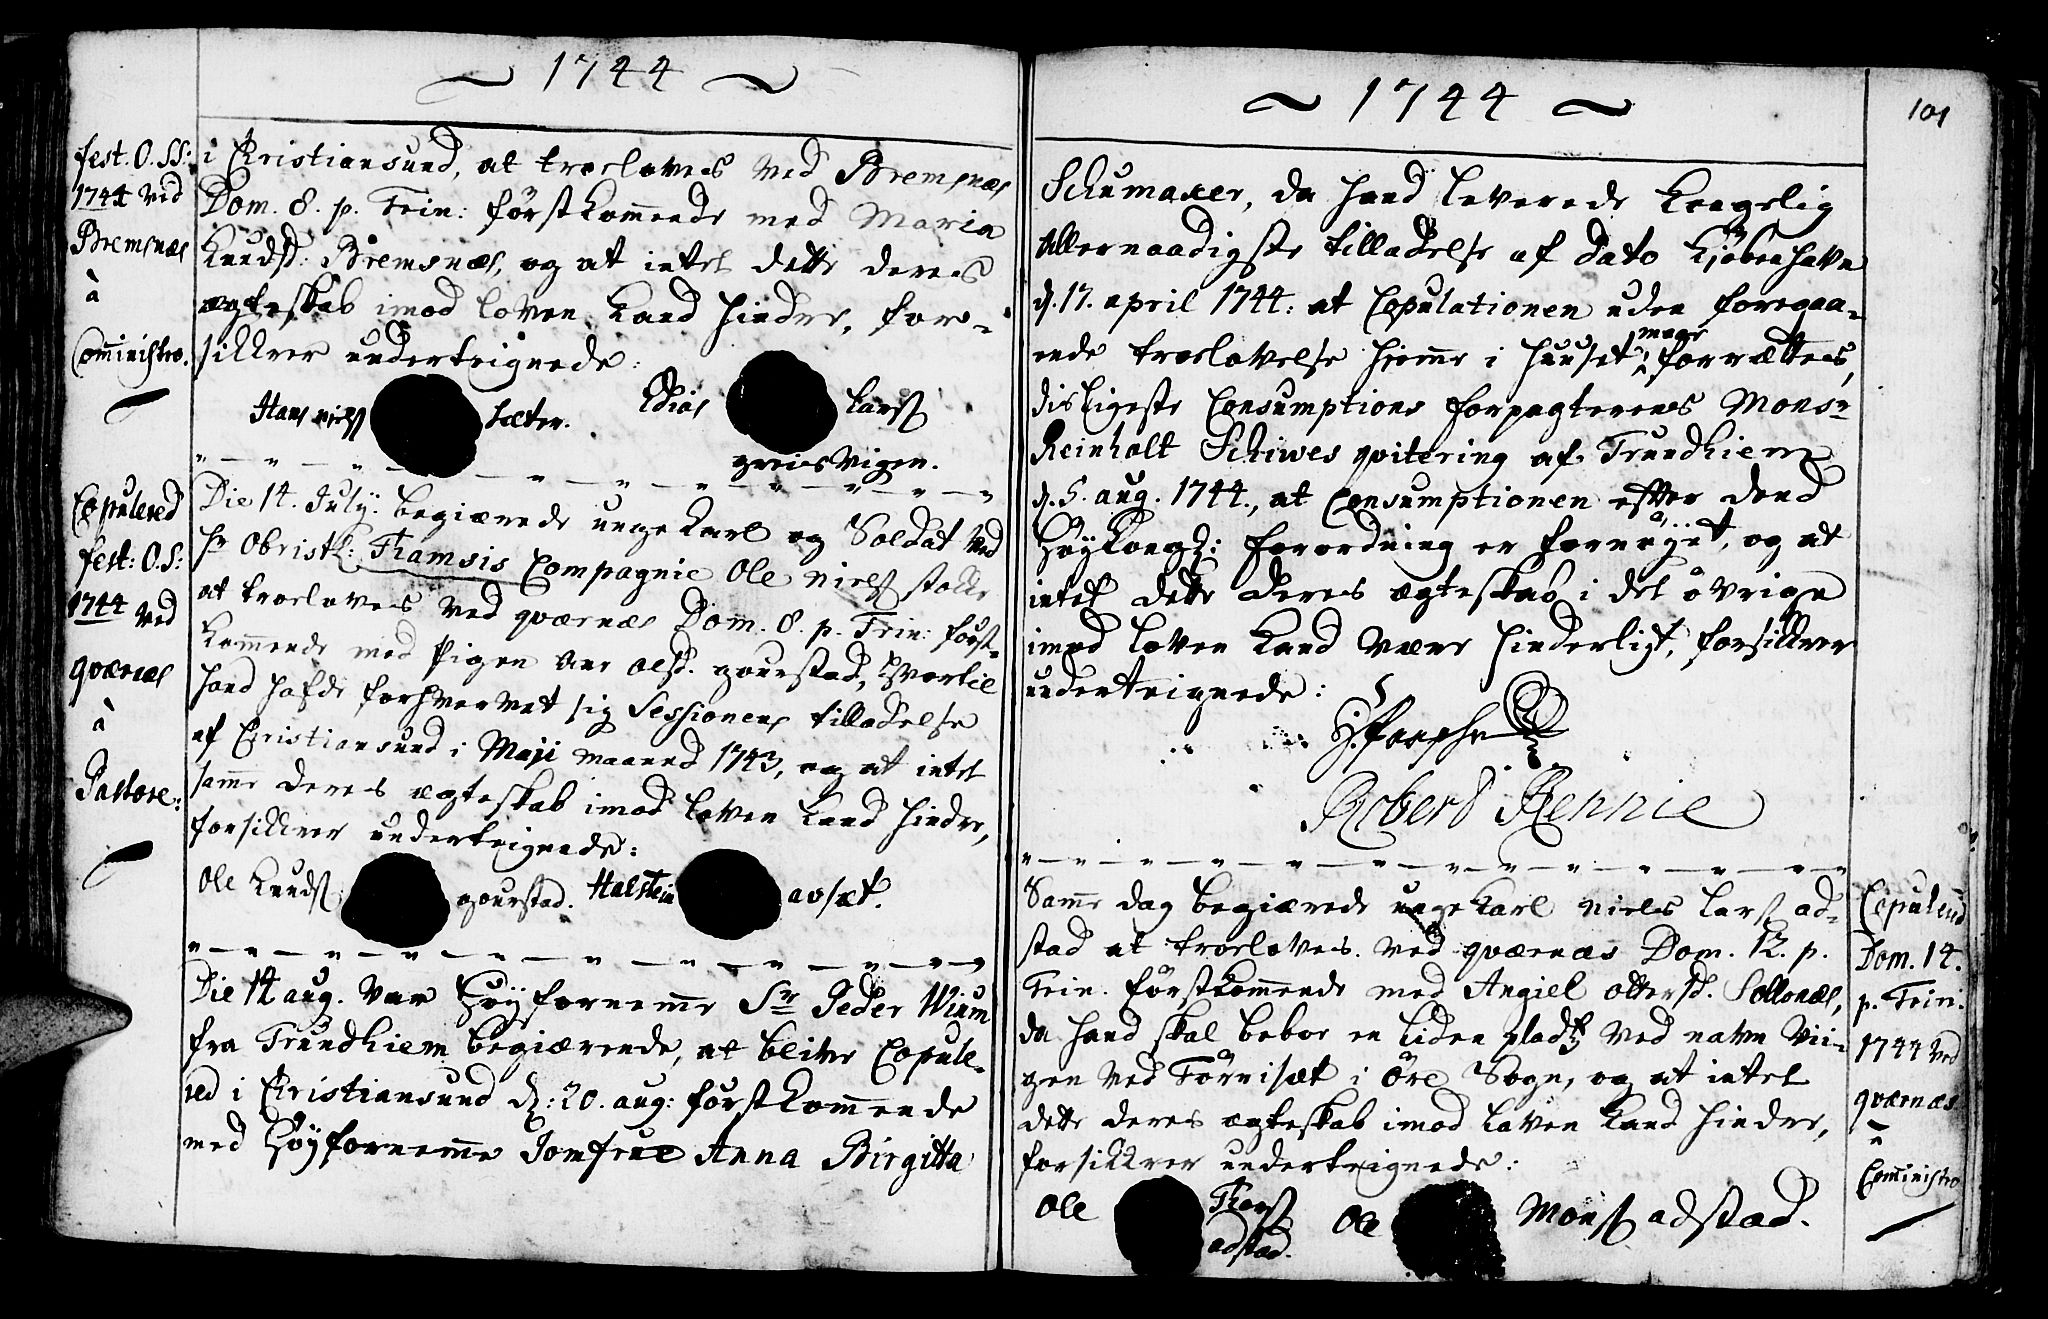 1744
fest. O. SS:
1744 ved
Bremsnæs
à
Comministro.
i Christiansund, at troeloves ved Bremsnæs
Dom. 8. p. Trin: førstkommende med Maria
Knudsd: Bremsnæs, og at intet dette deres
ægteskab imod loven kand hindre, for-
sikkrer underteignede:
Hans niels sæter. Lars
Vigen.
Copulered
fest: O.S:
1744 ved
qværnæs
à
Pastore:
Die 14. July: begiærede unge Karl og Soldat ved
hr Obristl: Thamsis Compagnie Ole niels
at troeloves ved qværnæs Dom. 8. p. Trin: først-
kommende med Pigen Ane olsd. gourstad, hvortil
hand hafde forhvervet sig Sessionens tilladelse
af Christiansund i Maji maaned 1743, og at intet
samme deres ægteskab imod loven kand hindre,
forsikkrer underteignede:
Ole Knuds gourstad. Halstein avsæt.
Die 14 aug. var Høyfornemme Sr Peder Wium
fra Trundhiem begiærende, at blive Copule-
red i Christiansund d: 20. aug: førstkommende
med Høyfornemme Jomfrue Anna Birgitta
1744
101
Schumaker, da hand leverede Kongelig
allernaadigste tilladelse af dato Kiøbenhavn
d. 17. april 1744: at Copulationen uden foregaa-
ende troelovelse hiemme i huuset maae forrættes,
disligeste Consumptions forpagterens Monsr
Reinholt Schiwes qvitering af Trundhiem
d. 5. aug. 1744., at Consumptionen efter dend
Høykongl: forordning er fornøyet, og at
intet dette deres ægteskab i det øvrige
imod loven kand være hinderligt, forsikkrer
underteignede:
Robert Rennie
Samme dag begiærede unge Karl niels lars ad-
stad at troeloves ved qværnæs Dom. 12. p.
Trin. førstkommende med Angiel ottersd. Sollonæs,
da hand skal beboe en liden plads ved navn Vii-
gen ved Törrisæt i Öre Sogn, og at intet
dette deres ægteskab imod loven kand hindre,
forsikkrer undertegnede:
Ole Thors adstad. Ole Mons adstad.
Copulered
Dom. 14.
p. Trin:
1744 ved
qværnæs
a
Comministro